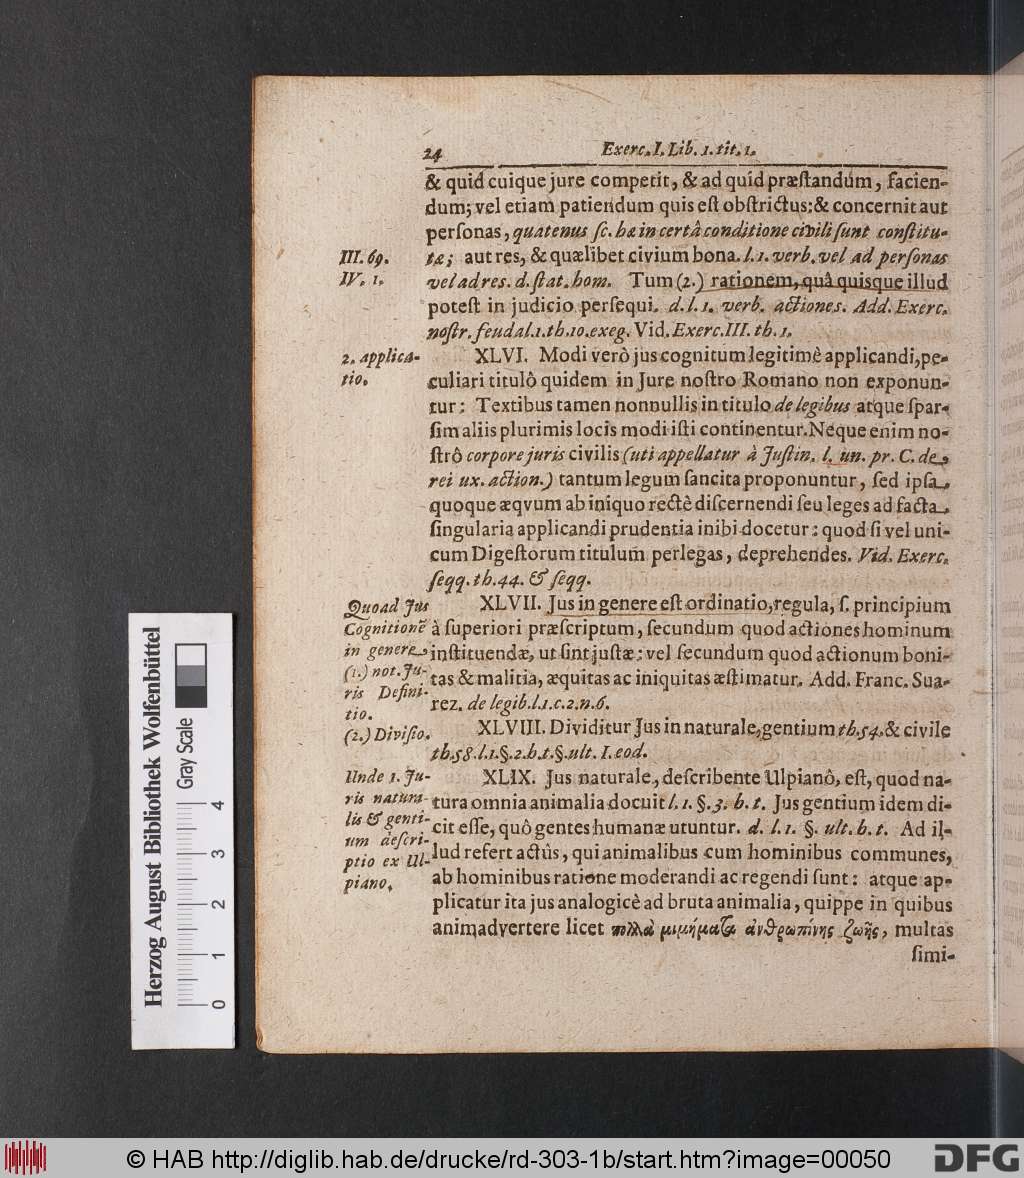 24 Exerc. I. Lib. 1. tit. 1.
& quid cuique jure competit, & ad quid præstandum, facien-
dum; vel etiam patiendum quis est obstrictus: & concernit aut
personas, quatenus sc. hæ in certâ conditione civili sunt constitu-
III. 69.
tæ; aut res, & quælibet civium bona. l. 1. verb. vel ad personas
IV. 1.
vel ad res. d. stat. hom. Tum (2.) rationem, quâ quisque illud
potest in judicio persequi. d. l. 1. verb. actiones. Add. Exerc.
nostr. feudal. 1. th. 10. exeg. Vid. Exerc. III. th. 1.
2. applica-
tio.
XLVI. Modi verò jus cognitum legitimè applicandi, pe-
culiari titulô quidem in Jure nostro Romano non exponun-
tur: Textibus tamen nonnullis in titulo de legibus atque spar-
sim aliis plurimis locis modi isti continentur. Neque enim no-
strô corpore juris civilis (uti appellatur à Justin. l. un. pr. C. de
rei ux. action.) tantum legum sancita proponuntur, sed ipsa
quoque æqvum ab iniquo rectè discernendi seu leges ad facta
singularia applicandi prudentia inibi docetur: quod si vel uni-
cum Digestorum titulum perlegas, deprehendes. Vid. Exerc.
seqq. th. 44. & seqq.
Quoad Jus
Cognitionē
in genere
(1.) not. Ju-
ris Defini-
tio.
XLVII. Jus in genere est ordinatio, regula, s. principium
à superiori præscriptum, secundum quod actiones hominum
instituendæ, ut sint justæ: vel secundum quod actionum boni-
tas & malitia, æquitas ac iniquitas æstimatur. Add. Franc. Sua-
rez. de legib. l. 1. c. 2. n. 6.
(2.) Divisio.
XLVIII. Dividitur Jus in naturale, gentium th. 54. & civile
th. 58. l. 1. §. 2. h. t. §. ult. I. eod.
Unde 1. Ju-
ris natura-
lis & genti-
um descri-
ptio ex Ul-
piano.
XLIX. Jus naturale, describente Ulpianô, est, quod na-
tura omnia animalia docuit l. 1. §. 3. h. t. Jus gentium idem di-
cit esse, quô gentes humanæ utuntur. d. l. 1. §. ult. h. t. Ad il-
lud refert actûs, qui animalibus cum hominibus communes,
ab hominibus ratione moderandi ac regendi sunt: atque ap-
plicatur ita jus analogicè ad bruta animalia, quippe in quibus
animadvertere licet πολλὰ μιμήματα ἀνθρωπίνης ζωῆς, multas
simi-
Herzog August Bibliothek Wolfenbüttel
Gray Scale
0 1 2 3 4
© HAB http://diglib.hab.de/drucke/rd-303-1b/start.htm?image=00050
DFG